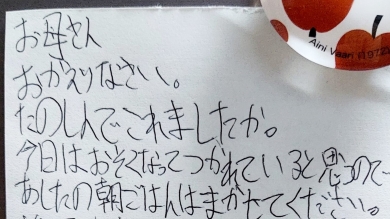 お母さん
おかえりなさい。
たのしんでこれましたか。
今日はおそくなってつかれていると思うので
あしたの朝ごはんはまかせてください。
Aini Vaari